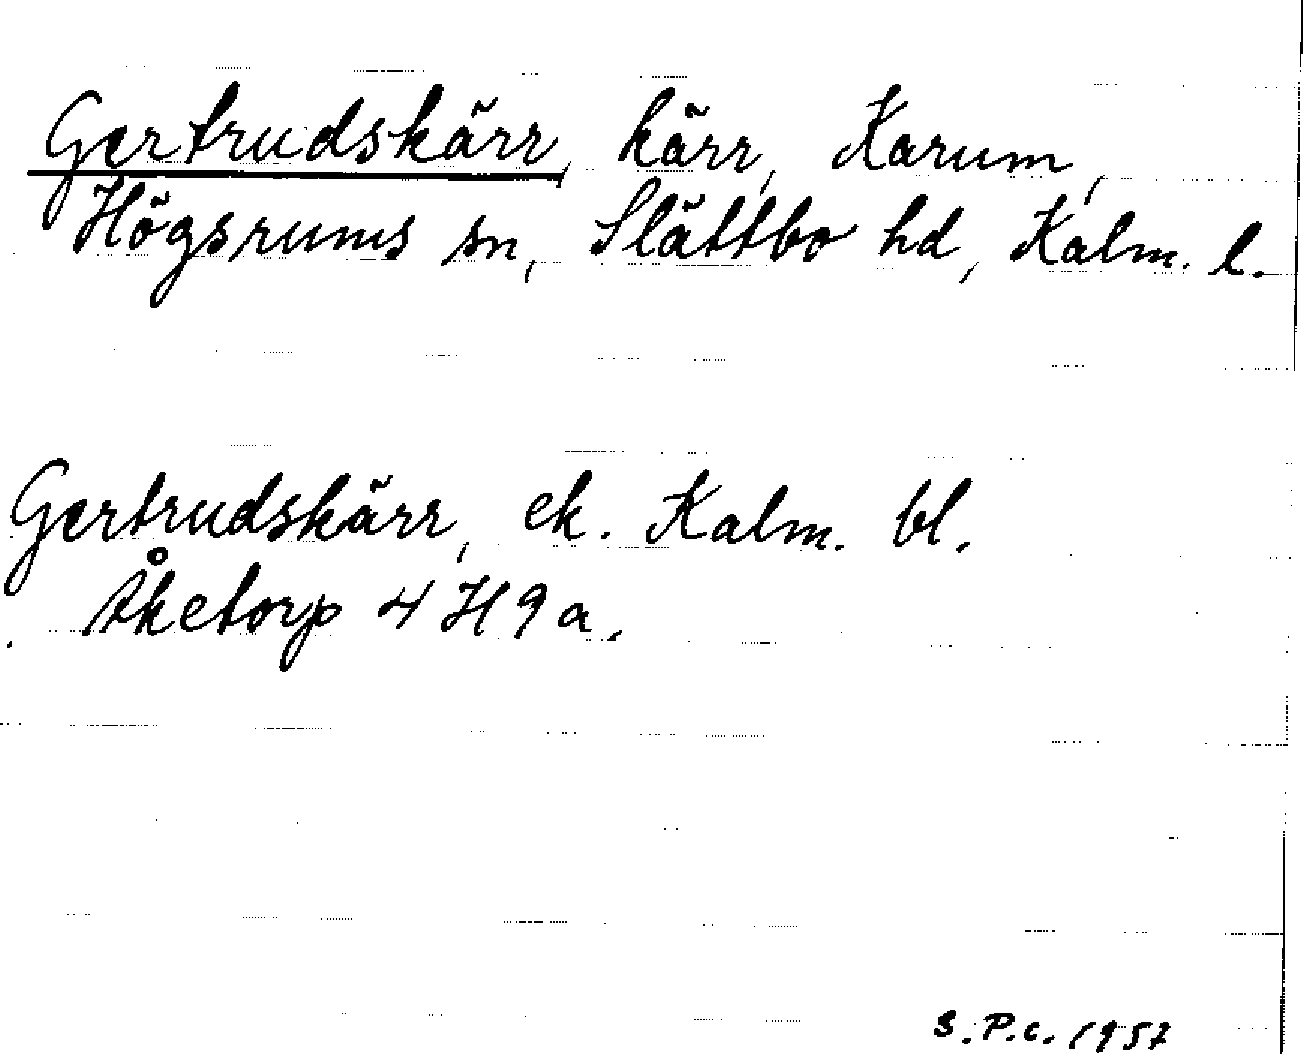 Gertrudskärr, kärr, Karum,
Högsrums sn, Slättbo hd, Kalm. l.
Gertrudskärr, ek. Kalm. bl.
Åketorp 4 H 9 a.
S.P.c. 1957